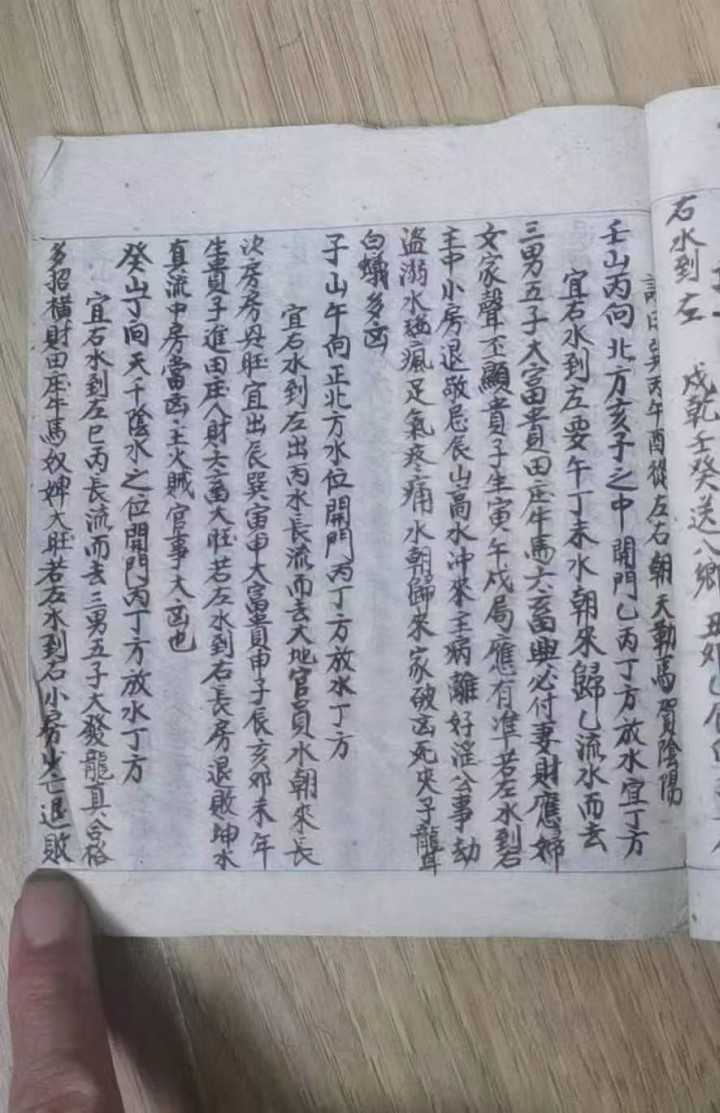 右水到左　戌乾壬癸送八鄉
丙午酉從左右朝天勒馬賀陰陽
壬山丙向北方亥子之中開門乙丙丁方放水宜丁方
宜右水到左要午丁未水朝來歸乙流水而去
三男五子大富貴田庄牛馬六畜興必付妻財應婦
女家聲丕顯貴子生寅午戌局應有準若左水到右
主中小房退敬忌辰山高水沖來主病離好淫公事劫
盜溺水瘋足氣疼痛水朝歸來家破凶死夾子龍耳
白蟻多凶
子山午向正北方水位開門丙丁方放水丁方
宜右水到左出丙水長流而去大地官員水朝來長
次房房旺宜出辰巽寅甲大富貴申子辰亥卯未年
生貴子進田庄人財六畜大旺若左水到右長房退敗坤水
真流中房當凶主火賊官事大凶也
癸山丁向天干陰水之位開門丙丁方放水丁方
宜右水到左巳丙長流而去三男五子大發龍真合格
多招橫財田庄牛馬奴婢大旺若左水到右小房少亡退敗